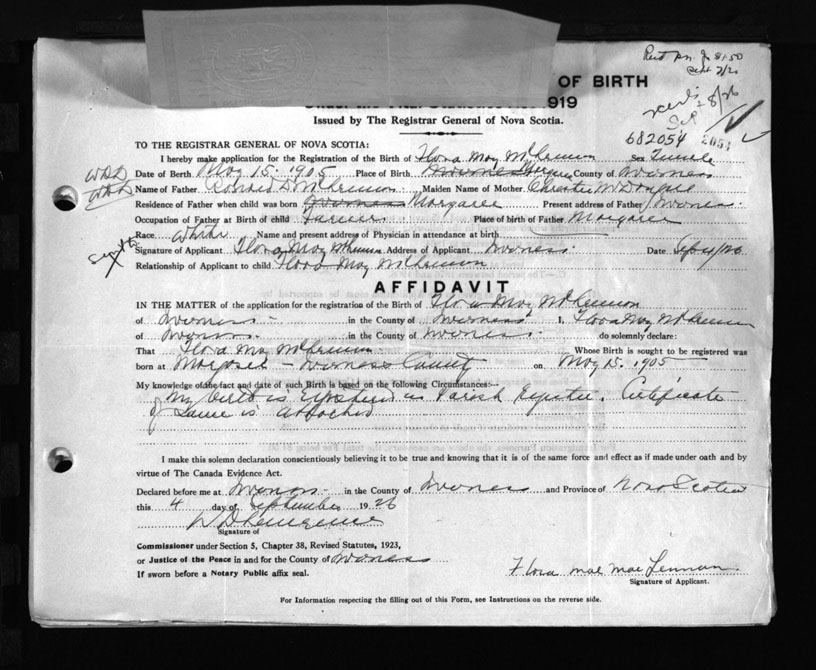 Sept 7/26
OF BIRTH
1919
Issued by The Registrar General of Nova Scotia.
8/26
682054 2054
TO THE REGISTRAR GENERAL OF NOVA SCOTIA:
I hereby make application for the Registration of the Birth of Flora May McLennan Sex Female
Date of Berth May 15. 1905 Place of Birth Inverness Margaree County of Inverness
Name of Father Ronald D. McLennan Maiden Name of Mother Christie McDougall
Residence of Father when child was born Inverness Margaree Present address of Father Inverness
Occupation of Father at Birth of child Farmer Place of birth of Father Margaree
Race White Name and present address of Physician in attendance at birth
Signature of Applicant Flora May McLennan Address of Applicant Inverness Date Sep 4/26
Relationship of Applicant to child Flora May McLennan
AFFIDAVIT
IN THE MATTER of the application for the registration of the Birth of Flora May McLennan
of Inverness in the County of Inverness I, Flora May McLennan
of Inverness in the County of Inverness do solemnly declare:
That Flora May McLennan Whose Birth is sought to be registered was
born at Margaree - Inverness County on May 15. 1905
My knowledge of the fact and date of such Birth is based on the following Circumstances:—
My birth is Registered in Parish Register. Certificate
of same is attached
I make this solemn declaration conscientiously believing it to be true and knowing that it is of the same force and effect as if made under oath and by
virtue of The Canada Evidence Act.
Declared before me at Inverness in the County of Inverness and Province of Nova Scotia
this 4 day of September 1926
Signature of
Commissioner under Section 5, Chapter 38, Revised Statutes, 1923,
or Justice of the Peace in and for the County of Inverness
If sworn before a Notary Public affix seal.
Flora Mae MacLennan
Signature of Applicant.
For Information respecting the filling out of this Form, see Instructions on the reverse side.